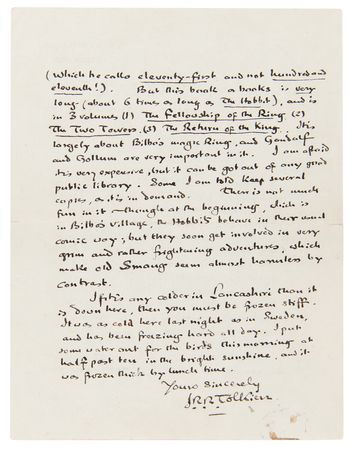 (which he calls eleventy-first and not hundred and
eleventh!). But this book or books is very
long (about 6 times as long as The Hobbit), and is
in 3 volumes (1) The Fellowship of the Ring (2)
The Two Towers. (3) The Return of the King. It is
largely about Bilbo's magic Ring, and Gandalf
and Gollum are very important in it. I am afraid
it is very expensive, but it can be got out of any good
public library. Some I am told keep several
copies, as it is in demand. There is not much
fun in it – though at the beginning, which is
in Bilbo's village, the Hobbits behave in their usual
comic way; but they soon get involved in very
grim and rather frightening adventures, which
make old Smaug seem almost harmless by
contrast.
If it is any colder in Lancashire than it
is down here, then you must be frozen stiff.
It was as cold here last night as in Sweden,
and has been freezing hard all day. I put
some water out for the birds this morning at
half past ten in the bright sunshine, and it
was frozen thick by lunch time.
Yours sincerely
J.R.R. Tolkien